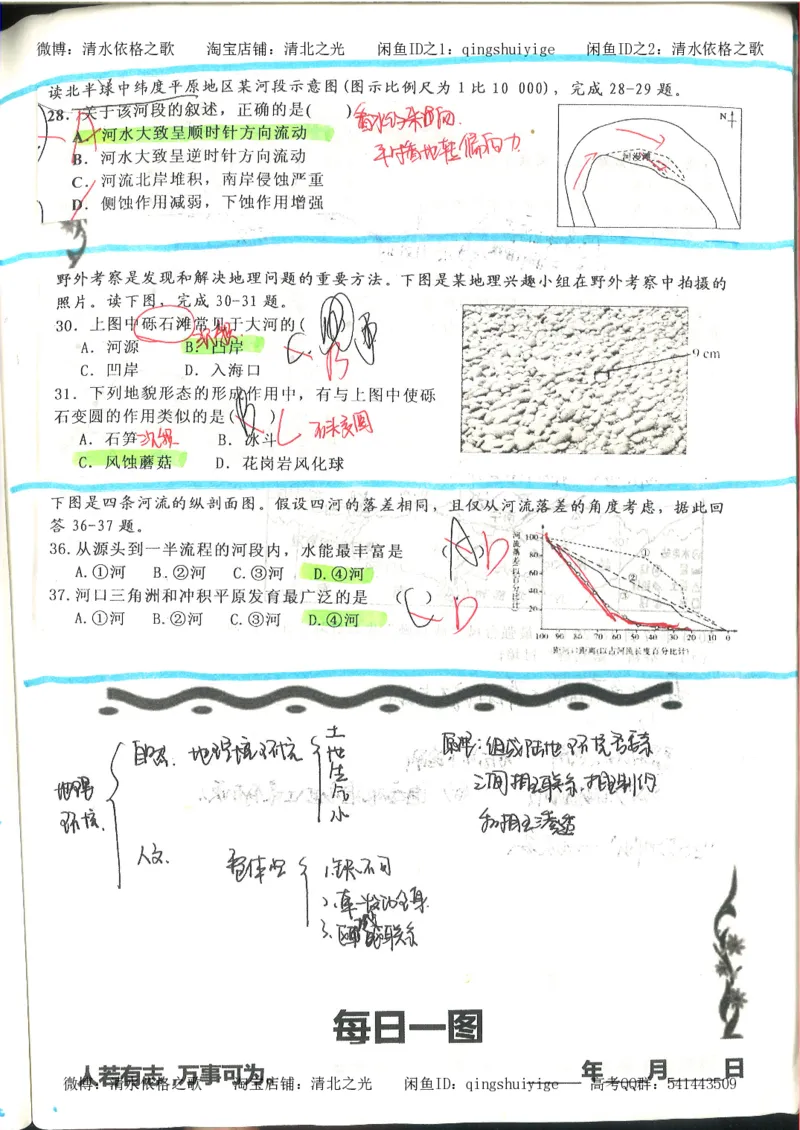 微博：清水依格之歌 淘宝店铺：清北之光 闲鱼ID之1：qingshuiyige 闲鱼ID之2：清水依格之歌
读北半球中纬度平原地区某河段示意图(图示比例尺为1比10 000)，完成28-29题。
28．关于该河段的叙述，正确的是( )
A．河水大致呈顺时针方向流动
B．河水大致呈逆时针方向流动
C．河流北岸堆积，南岸侵蚀严重
D．侧蚀作用减弱，下蚀作用增强
偏向力
N
河漫滩
野外考察是发现和解决地理问题的重要方法。下图是某地理兴趣小组在野外考察中拍摄的
照片。读下图，完成30-31题。
30．上图中砾石滩常见于大河的( )
沉积
B
A．河源 B．凸岸
C．凹岸 D．入海口
9 cm
31．下列地貌形态的形成作用中，有与上图中使砾
石变圆的作用类似的是( )
石头变圆
A．石笋 沉积 B．冰斗
C．风蚀蘑菇 D．花岗岩风化球
下图是四条河流的纵剖面图。假设四河的落差相同，且仅从河流落差的角度考虑，据此回
答36-37题。
36.从源头到一半流程的河段内，水能最丰富是 (A) D
A.①河 B.②河 C.③河 D.④河
37.河口三角洲和冲积平原发育最广泛的是 (C) D
A.①河 B.②河 C.③河 D.④河
河流落差(以百分比计)
100
80
60
40
20
①
②
100 90 80 70 60 50 40 30 20 10 0
距河口距离(以占河流长度百分比计)
地理
环境
自然 地理环境
土
地
生
气
水
人文
整体性
1.缺一不可
2.牵一发动全身
3.区域联系
原理：组成陆地环境各要素
之间相互联系，相互制约
和相互渗透
每日一图
人若有志 万事可为。
年 月 日
微博：清水依格之歌 淘宝店铺：清北之光 闲鱼ID：qingshuiyige 高考QQ群：541443509